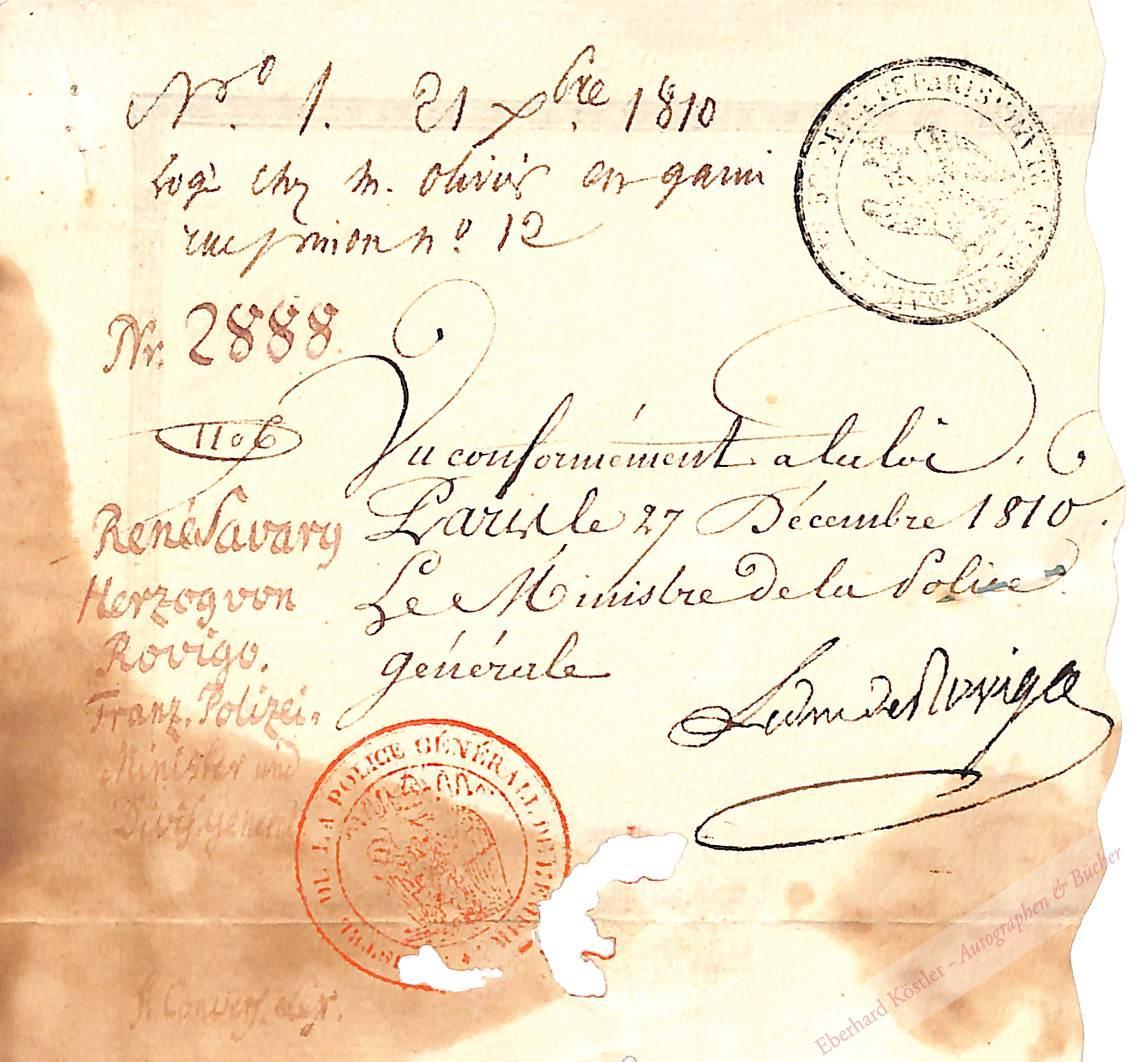 No. 1. 21 Xbre 1810
Logé chez M. Olivier en garni
rue pinon no. 12
Nr. 2888.
1106
Vu conformément a la loi.
Paris le 27 Décembre 1810.
Le Ministre de la Police
générale
Le duc de Rovigo
René Savary
Herzog von
Rovigo.
Franz. Polizei-
Minister und
DE LA POLICE GÉNÉRALE DE L'EMPIRE
s. Convers. Lex.
Eberhard Köstler - Autographen & Bücher